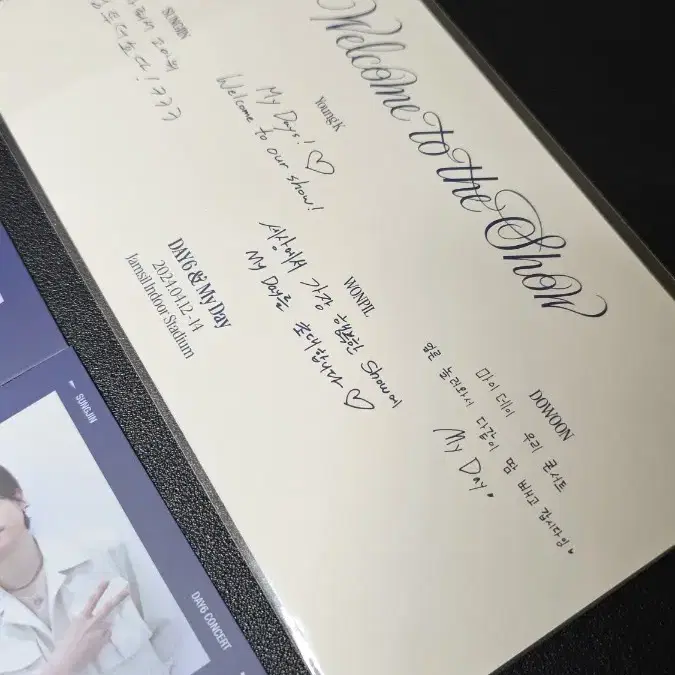 Welcome to the Show
SUNGJIN
Young K
My Days! ♡
Welcome to our show!
WONPIL
세상에서 가장 행복한 Show에
My Day를 초대합니다 ♡
DOWOON
마이데이 우리 콘서트
얼른 놀러와서 다같이 땀 빼고 갑시다잉
My Day.
DAY6 & My Day
2024.04.12 - 14
Jamsil Indoor Stadium
SUNGJIN
DAY6 CONCERT